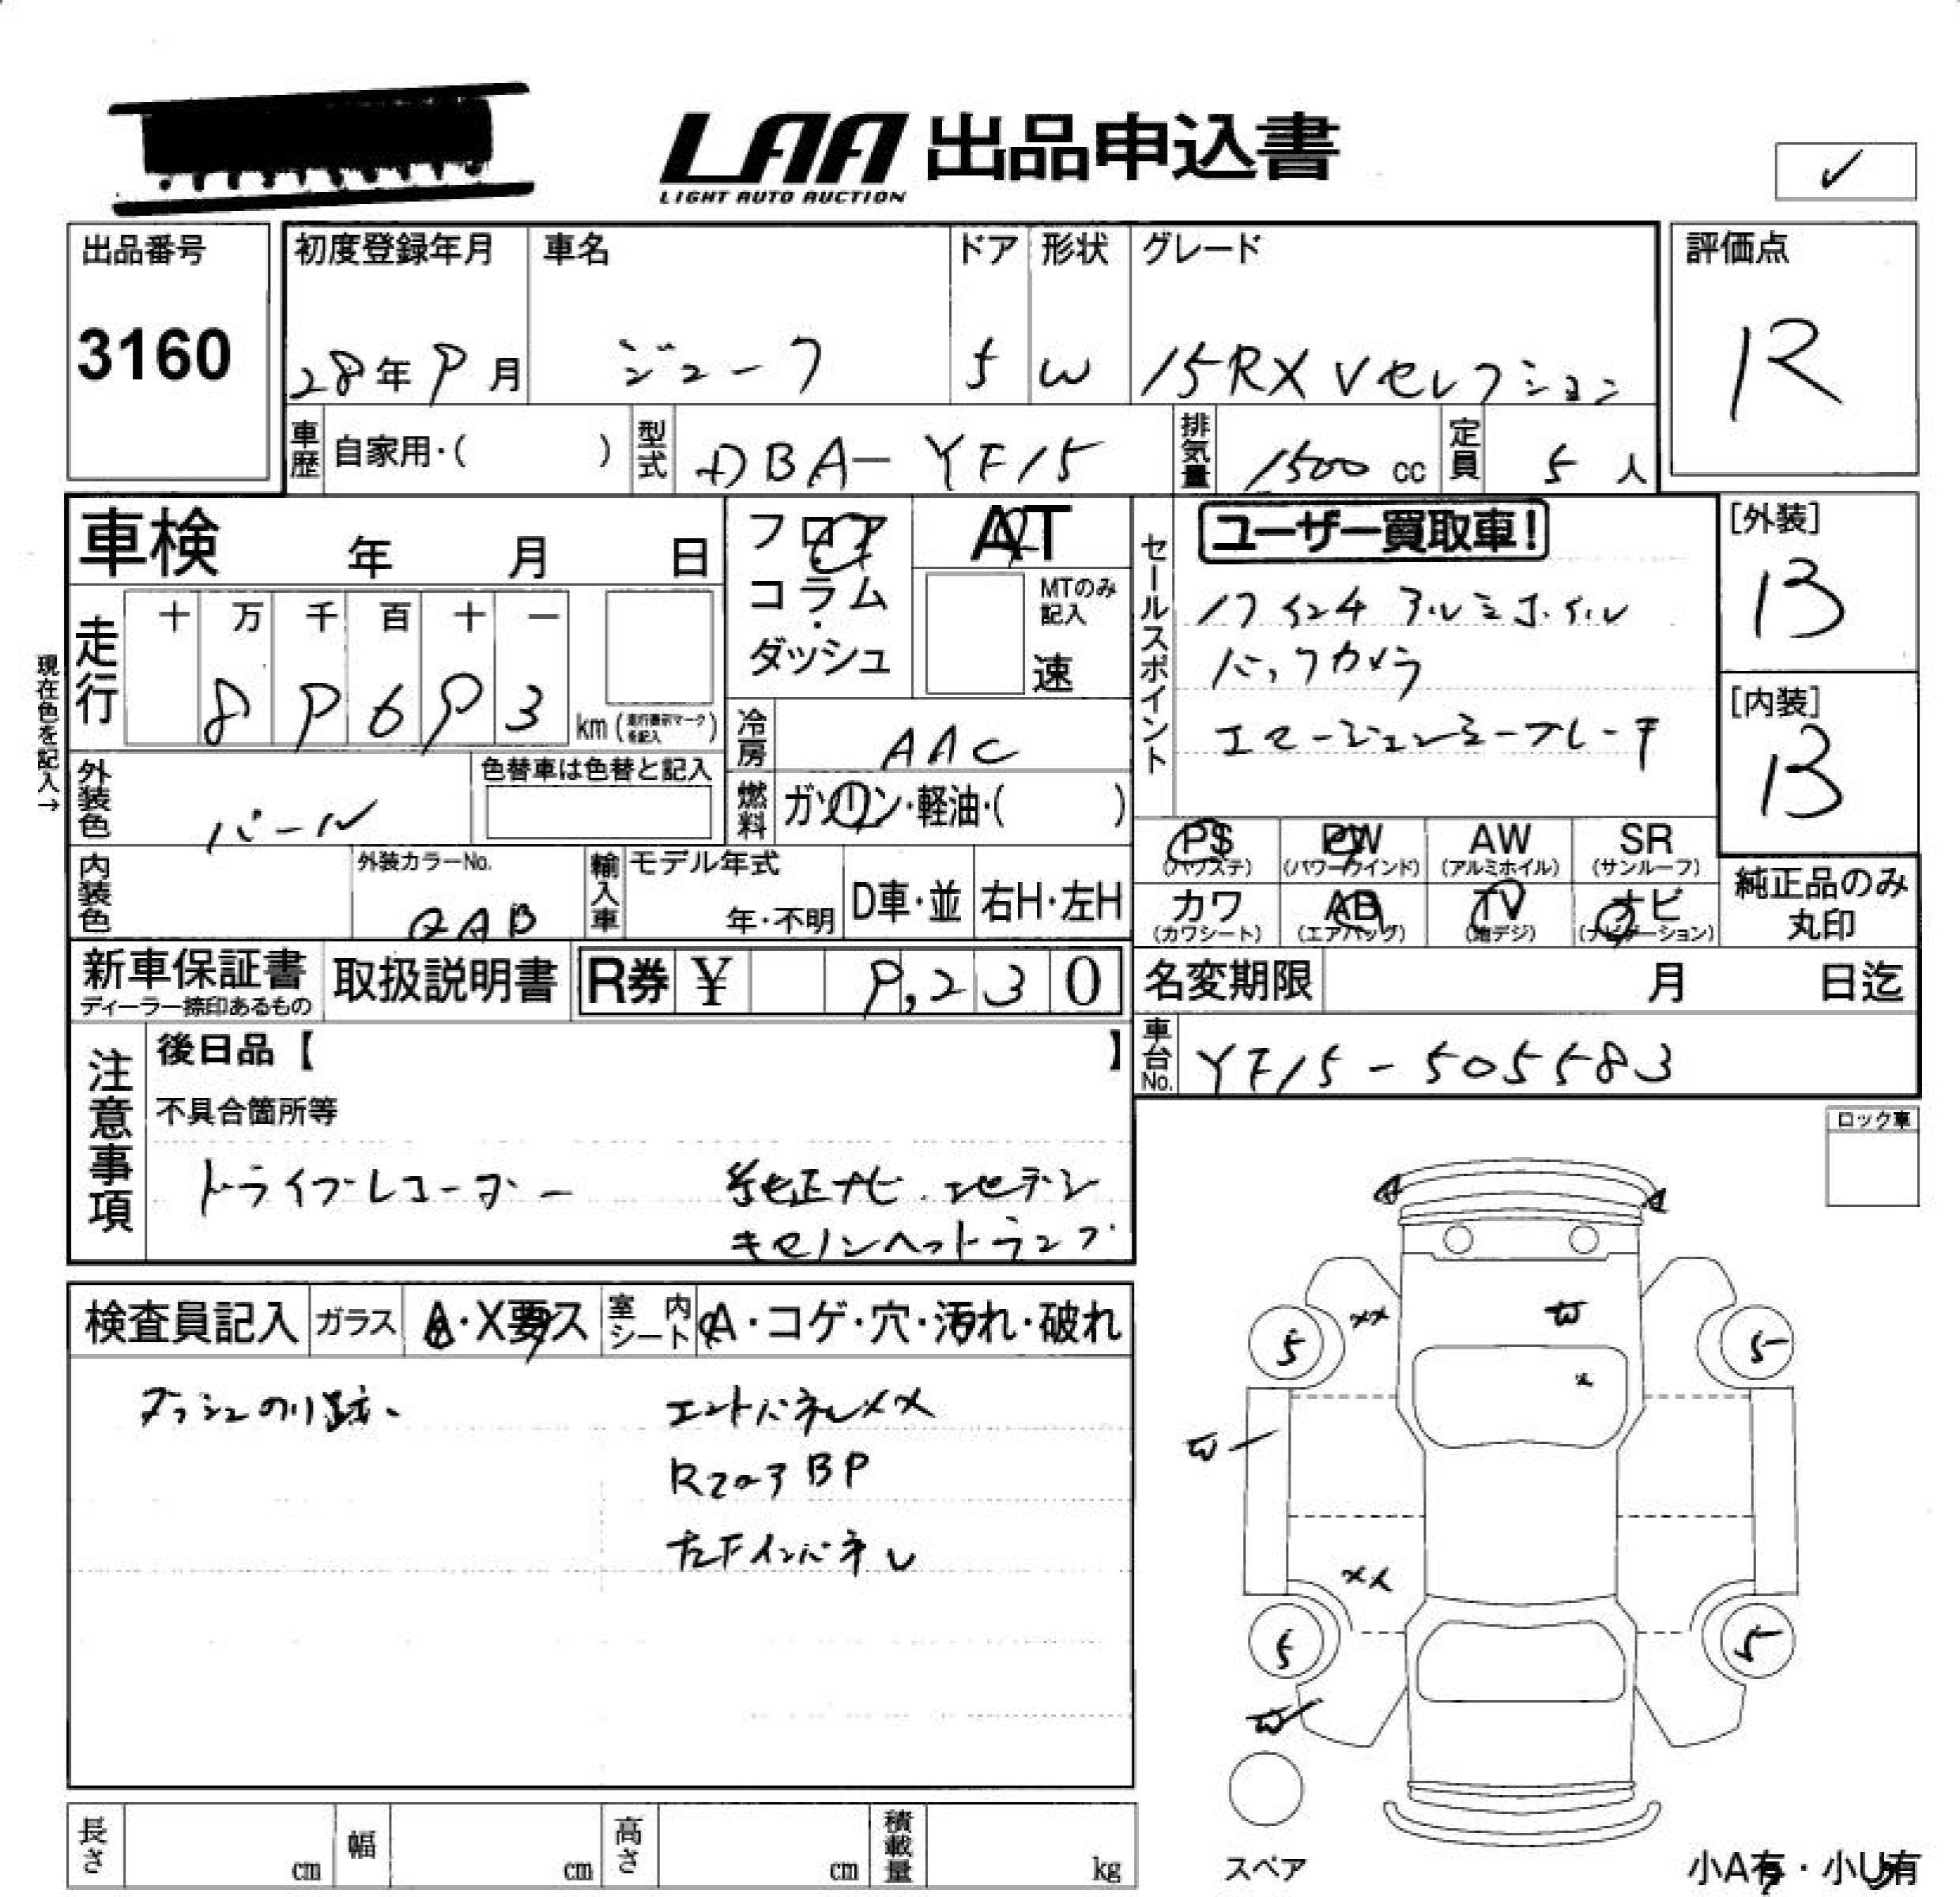 LAA 出品申込書
LIGHT AUTO AUCTION
✓
出品番号
3160
初度登録年月
28年9月
車名
ジューク
ドア
5
形状
W
グレード
15RX Vセレクション
評価点
R
車歴
自家用・( )
型式
DBA-YF15
排気量
1500 cc
定員
5 人
車検 年 月 日
フロア
コラム
・
ダッシュ
AT
MTのみ
記入
速
セールスポイント
ユーザー買取車!
17インチアルミホイル
バックカメラ
エマージェンシーブレーキ
[外装]
B
[内装]
B
現在色を記入→
走行
十 万 千 百 十 一
8 9 6 9 3
km (走行表示マークを記入)
冷房
AAC
外装色
パール
色替車は色替と記入
燃料
ガソリン・軽油・( )
PS
(パワステ)
PW
(パワーウインド)
AW
(アルミホイル)
SR
(サンルーフ)
内装色
外装カラーNo.
QAB
輸入車
モデル年式
年・不明
D車・並
右H・左H
カワ
(カワシート)
AB
(エアバッグ)
TV
(地デジ)
ナビ
(ナビゲーション)
純正品のみ
丸印
新車保証書
ディーラー捺印あるもの
取扱説明書
R券 ¥ 9,230
名変期限 月 日迄
車台No.
YF15-505583
注意事項
後日品【 】
不具合箇所等
ドライブレコーダー
純正ナビ.地デジ
キセノンヘッドランプ
ロック車
検査員記入
ガラス
A・X要ス
室内
シート
A・コゲ・穴・汚れ・破れ
ダッシュのり跡、
エンドパネルXX
RフロアBP
左Fインパネル
A
A
XX
W
5
5
X
W
XX
5
5
W
スペア
長さ cm
幅 cm
高さ cm
積載量 kg
小A有・小U有